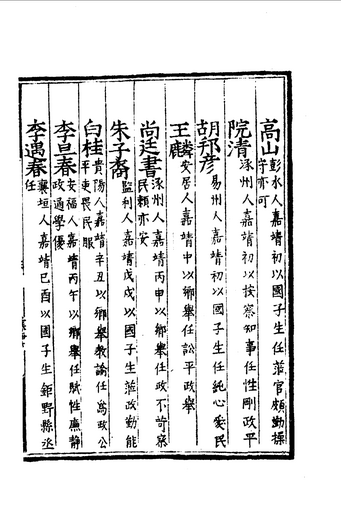 高山彭水人嘉靖初以國子生任蒞官頗勤操
守亦可
院清涿州人嘉靖初以按察知事任性剛政平
胡邦彥易州人嘉靖初以國子生任純心愛民
王麟安居人嘉靖中以鄉舉任訟平政舉
尚廷書涿州人嘉靖丙申以鄉舉任政不苛察
民頼亦安
朱子裔監利人嘉靖戊戍以國子生蒞政勤能
白桂貴陽人嘉靖辛丑以鄉舉教諭任為政公
平吏畏民服
李旦春安福人嘉靖丙午以鄉舉任賦性㢘静
政通學優
李遇春襄垣人嘉靖已酉以國子生鉅野縣丞
任